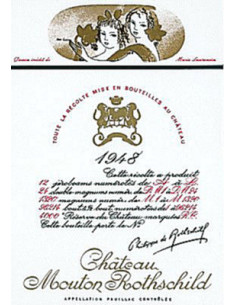 Dessin inédit de Marie Laurencin
TOUTE LA RÉCOLTE MISE EN BOUTEILLES AU CHÂTEAU
1948
Cette récolte a produit
12 jéroboams numérotés de
24 double magnums numér. de
magnums numér. de M 1 à M
bout. et ½ bout. numérotées de
"Réserve du Château" marquées R.C.
Cette bouteille porte le No
Château
Mouton Rothschild
APPELLATION PAUILLAC CONTRÔLÉE